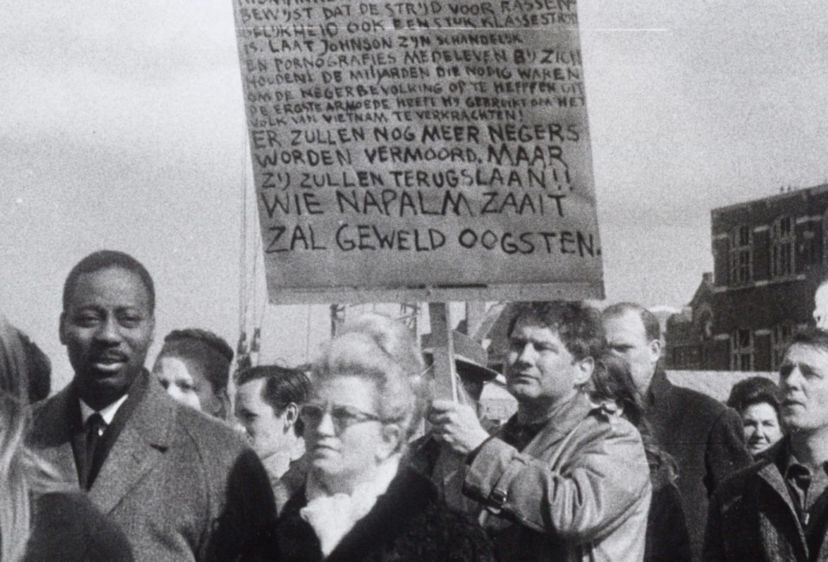 BEWIJST DAT DE STRIJD VOOR RASSEN-
GELIJKHEID OOK EEN STUK KLASSESTRIJD
IS. LAAT JOHNSON ZIJN SCHANDELIJK
EN PORNOGRAFIES MEDELEVEN BIJ ZICH
HOUDEN! DE MILJARDEN DIE NODIG WAREN
OM DE NEGERBEVOLKING OP TE HEFFFEN UIT
DE ERGSTE ARMOEDE HEEFT HIJ GEBRUIKT OM HET
VOLK VAN VIETNAM TE VERKRACHTEN!
ER ZULLEN NOG MEER NEGERS
WORDEN VERMOORD, MAAR
ZIJ ZULLEN TERUGSLAAN!!
WIE NAPALM ZAAIT
ZAL GEWELD OOGSTEN.